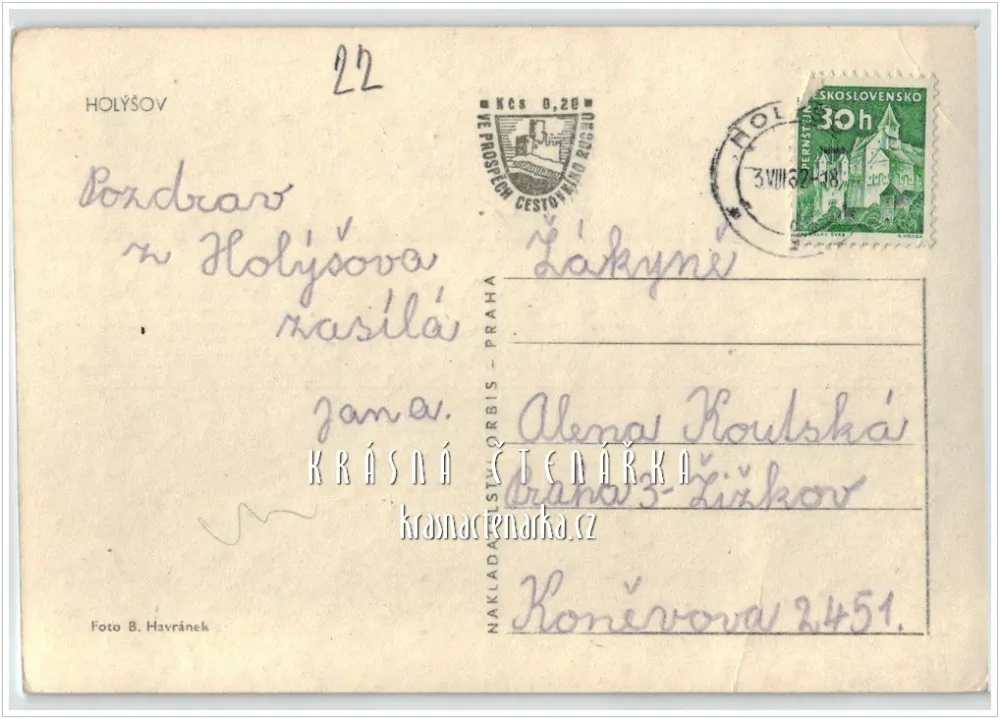 22
HOLÝŠOV
Kčs 0,20
VE PROSPĚCH CESTOVNÍHO RUCHU
ČESKOSLOVENSKO
30h
PERNŠTEJN
3.VIII.62-18
Pozdrav
z Holýšova
zasílá
jana.
Žákyně
Alena Koutská
Praha 3-Žižkov
Koněvova 2451.
NAKLADATELSTVÍ ORBIS - PRAHA
KRÁSNÁ ČTENÁŘKA
krasnactenarka.cz
Foto B. Havránek